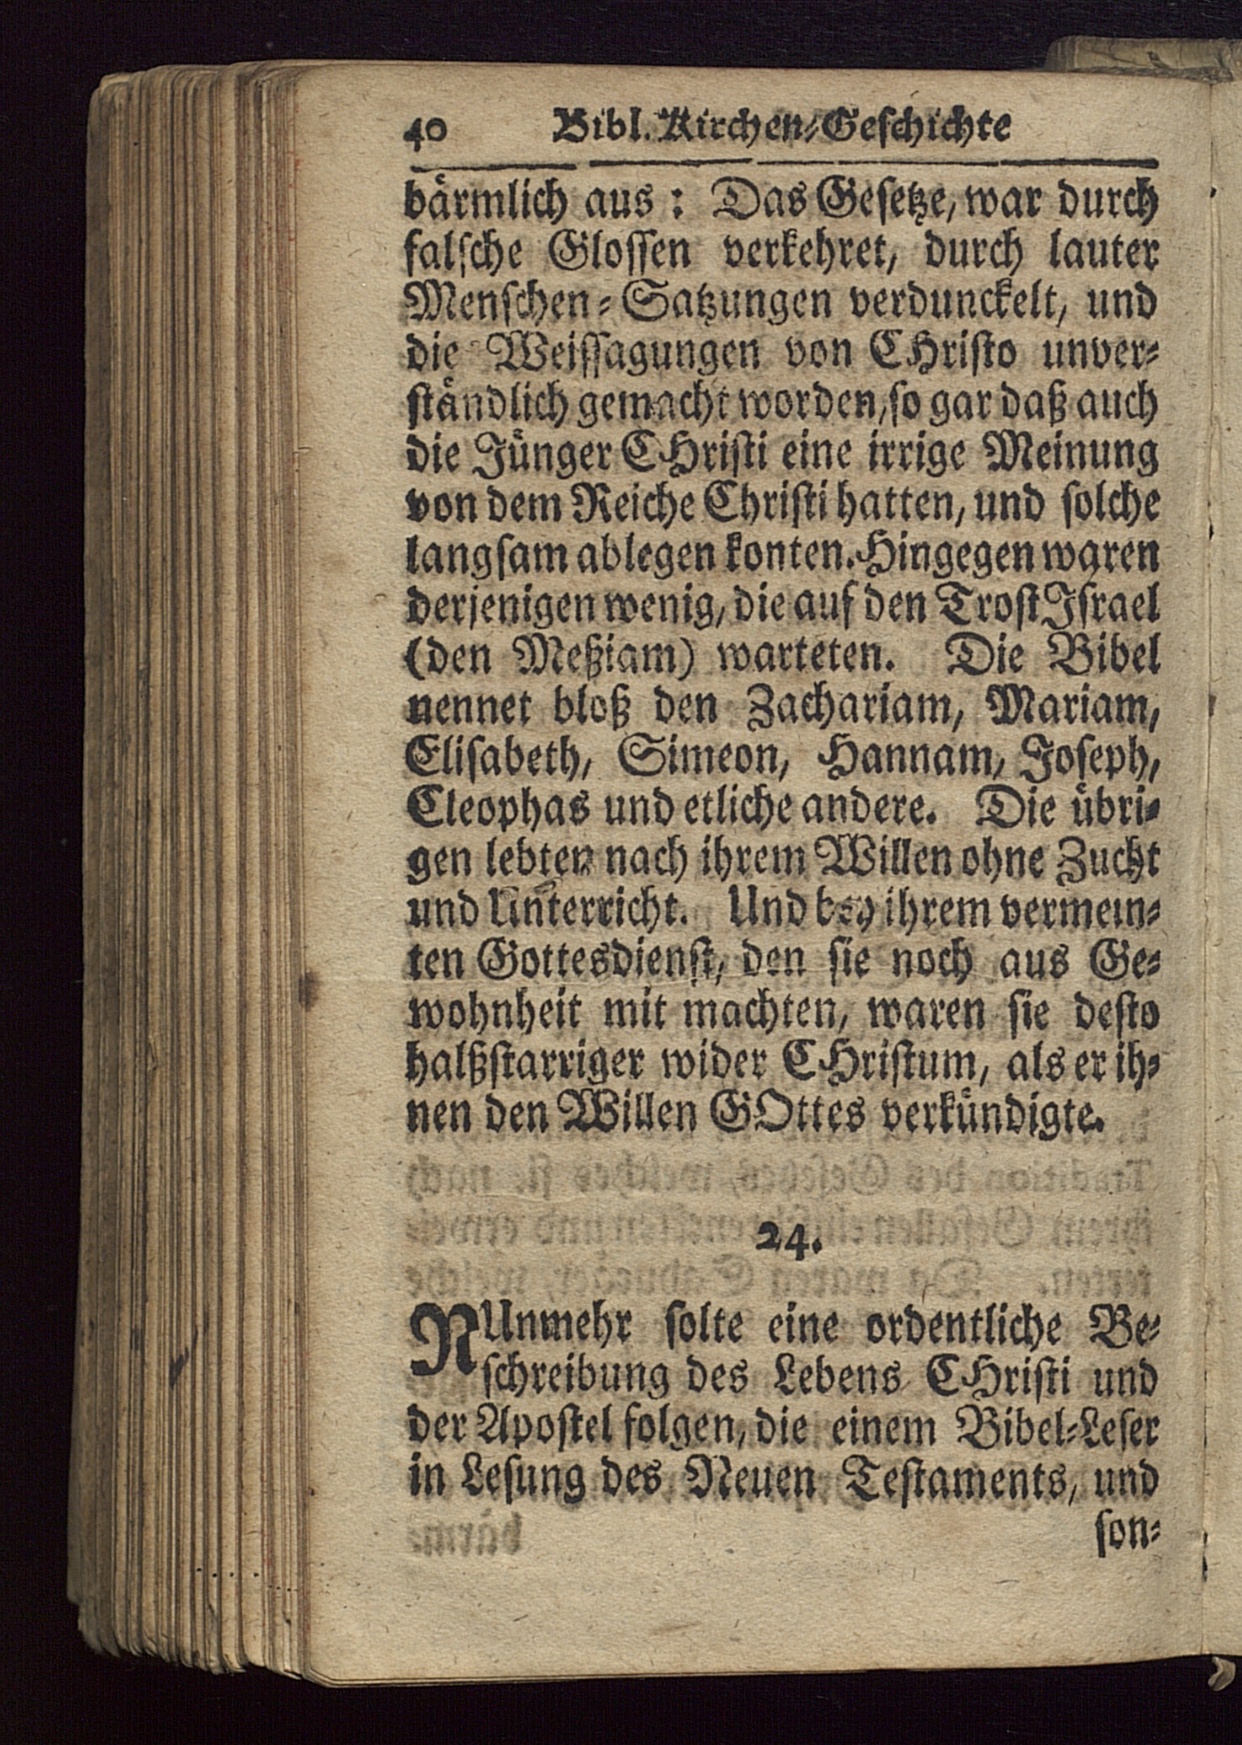 40 Bibl. Kirchen-Geschichte
bärmlich aus: Das Gesetze, war durch
falsche Glossen verkehret, durch lauter
Menschen-Satzungen verdunckelt, und
die Weissagungen von CHristo unver-
ständlich gemacht worden, so gar daß auch
die Jünger CHristi eine irrige Meinung
von dem Reiche Christi hatten, und solche
langsam ablegen konten. Hingegen waren
derjenigen wenig, die auf den Trost Israel
(den Meßiam) warteten. Die Bibel
nennet bloß den Zachariam, Mariam,
Elisabeth, Simeon, Hannam, Joseph,
Cleophas und etliche andere. Die übri-
gen lebten nach ihrem Willen ohne Zucht
und Unterricht. Und bey ihrem vermein-
ten Gottesdienst, den sie noch aus Ge-
wohnheit mit machten, waren sie desto
halßstarriger wider CHristum, als er ih-
nen den Willen GOttes verkündigte.
24.
NUnmehr solte eine ordentliche Be-
schreibung des Lebens CHristi und
der Apostel folgen, die einem Bibel-Leser
in Lesung des Neuen Testaments, und
son-